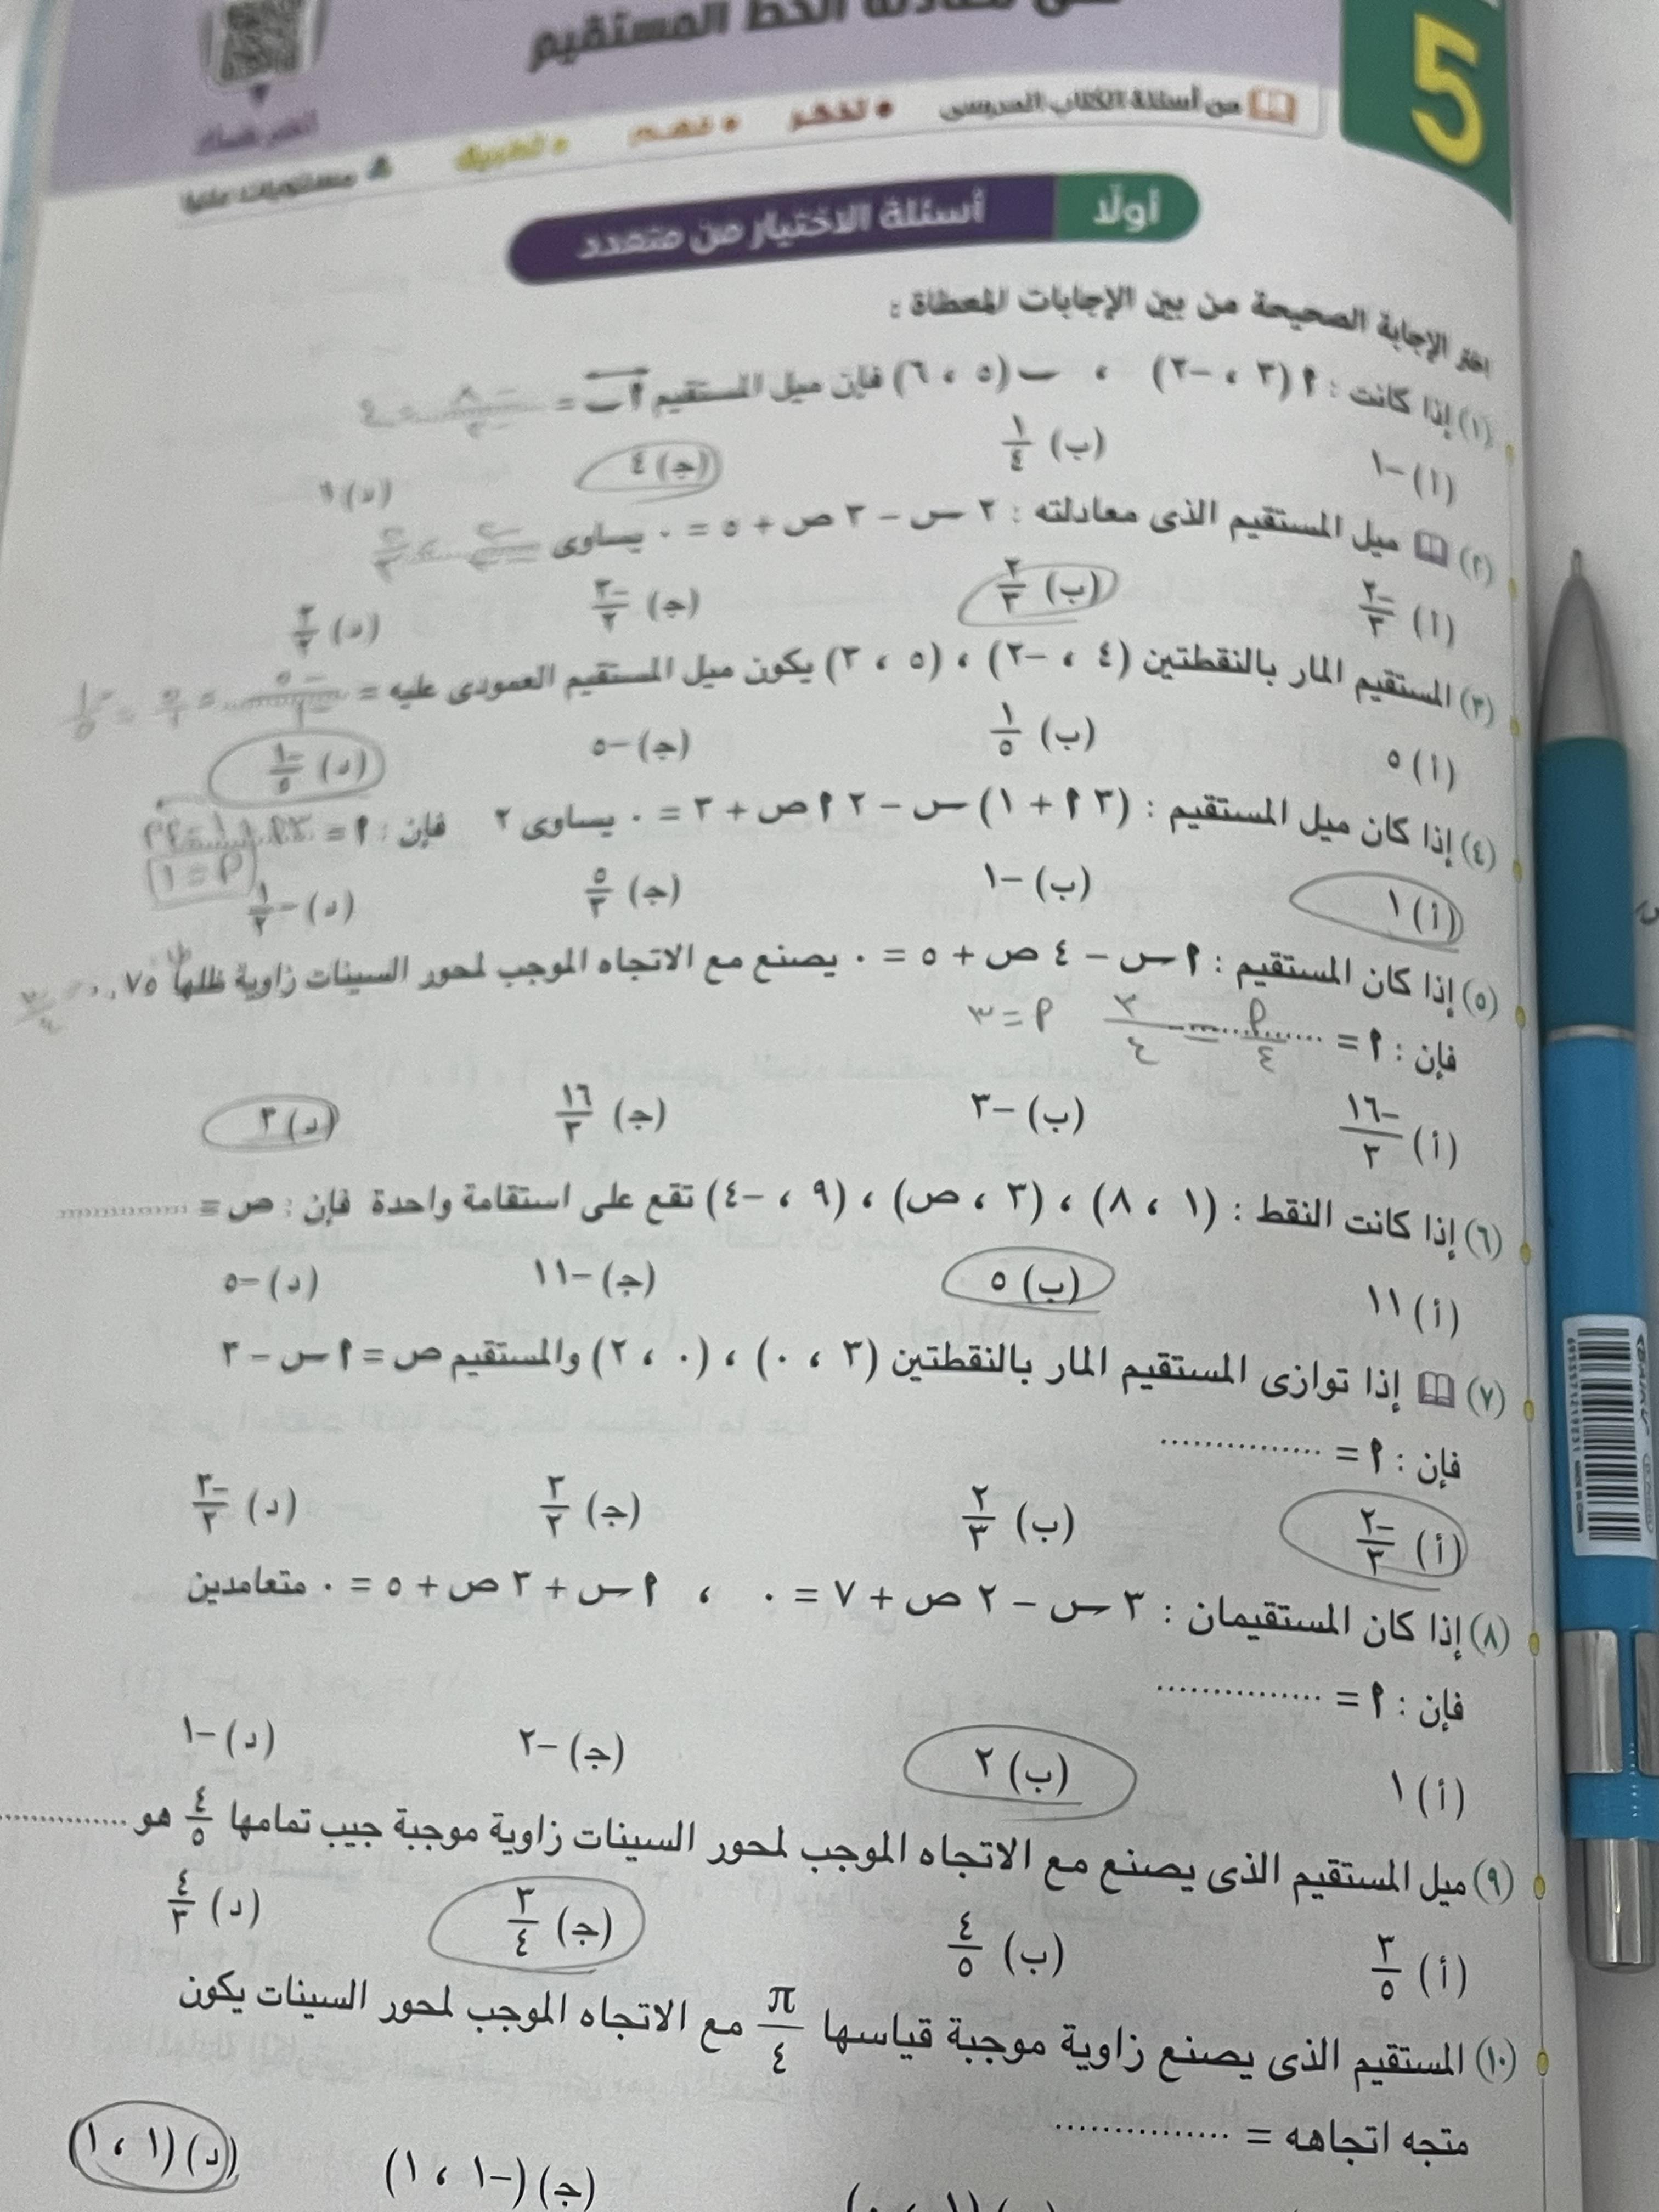 5
معادلة الخط المستقيم
من أسئلة الكتاب المدرسى • تذكر • فهم • تطبيق مستويات عليا
أولًا أسئلة الاختيار من متعدد
اختر الإجابة الصحيحة من بين الإجابات المعطاة :
(١) إذا كانت : ٢ (٣ ، -٢) ، ب (٥ ، ٦) فإن ميل المستقيم أب =
(أ) -١ (ب) ١/٤ (ج) ٤
(٢) ميل المستقيم الذى معادلته : ٢ س - ٣ ص + ٥ = ٠ يساوى
(أ) -٢/٣ (ب) ٢/٣ (ج) -٣/٢ (د) ٣/٢
(٣) المستقيم المار بالنقطتين (٤ ، -٢) ، (٥ ، ٣) يكون ميل المستقيم العمودى عليه =
(أ) ٥ (ب) ١/٥ (ج) -٥ (د) -١/٥
(٤) إذا كان ميل المستقيم : (٣ أ + ١) س - ٢ أ ص + ٣ = ٠ يساوى ٢ فإن : أ =
أ = ١
(أ) ١ (ب) -١ (ج) ٥/٣ (د) -١/٢
(٥) إذا كان المستقيم : أ س - ٤ ص + ٥ = ٠ يصنع مع الاتجاه الموجب لمحور السينات زاوية ظلها ٠,٧٥
فإن : أ = .......... أ/٤ = ٣/٤ أ = ٣
(أ) -١٦/٣ (ب) -٣ (ج) ١٦/٣ (د) ٣
(٦) إذا كانت النقط : (١ ، ٨) ، (٣ ، ص) ، (٩ ، -٤) تقع على استقامة واحدة فإن : ص = ..........
(أ) ١١ (ب) ٥ (ج) -١١ (د) -٥
(٧) إذا توازى المستقيم المار بالنقطتين (٣ ، ٠) ، (٠ ، ٢) والمستقيم ص = أ س - ٣
فإن : أ = ..........
(أ) -٢/٣ (ب) ٢/٣ (ج) ٣/٢ (د) -٣/٢
(٨) إذا كان المستقيمان : ٣ س - ٢ ص + ٧ = ٠ ، أ س + ٣ ص + ٥ = ٠ متعامدين
فإن : أ = ..........
(أ) ١ (ب) ٢ (ج) -٢ (د) -١
(٩) ميل المستقيم الذى يصنع مع الاتجاه الموجب لمحور السينات زاوية موجبة جيب تمامها ٤/٥ هو ..........
(أ) ٣/٥ (ب) ٤/٥ (ج) ٣/٤ (د) ٤/٣
(١٠) المستقيم الذى يصنع زاوية موجبة قياسها π/٤ مع الاتجاه الموجب لمحور السينات يكون
متجه اتجاهه = ..........
(ج) (-١ ، ١) (د) (١ ، ١)